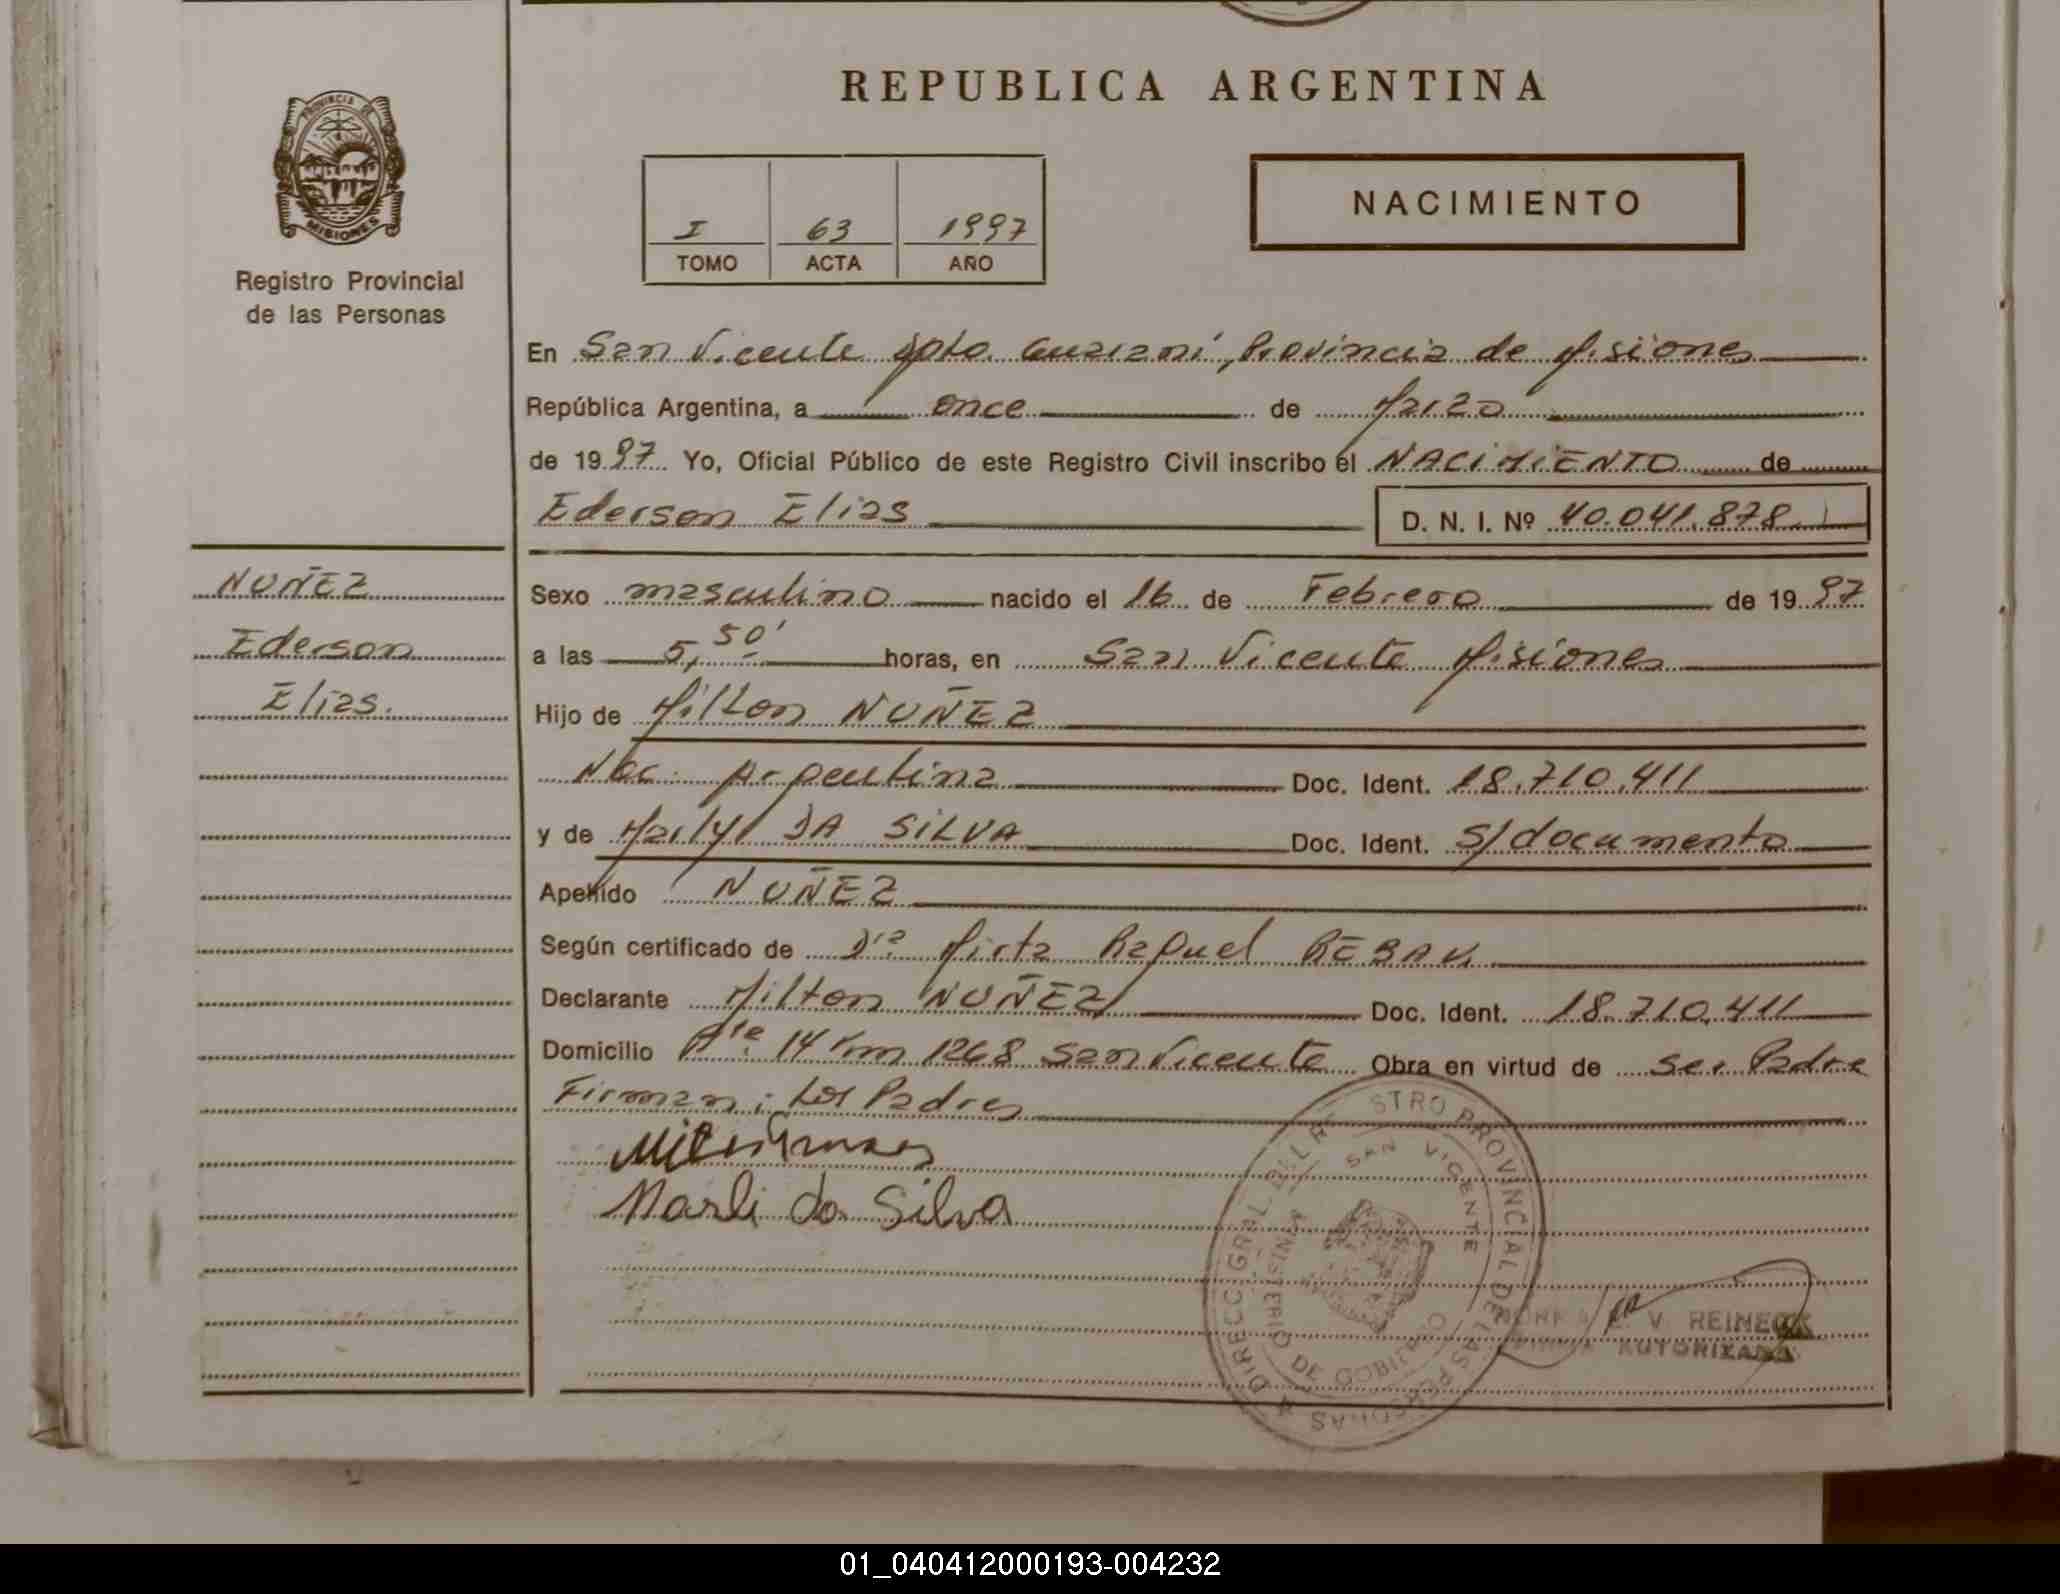 REPUBLICA ARGENTINA
PROVINCIA DE
MISIONES
Registro Provincial
de las Personas
I 63 1997
TOMO ACTA AÑO
NACIMIENTO
En San Vicente Dpto. Guaraní, Provincia de Misiones
República Argentina, a once de Marzo
de 1997 Yo, Oficial Público de este Registro Civil inscribo el NACIMIENTO de
Ederson Elias D. N. I. Nº 40.041.878.
NUÑEZ
Ederson
Elias.
Sexo masculino nacido el 16 de Febrero de 1997
a las 5,50' horas, en San Vicente Misiones
Hijo de Milton NUÑEZ
Nac. Argentina Doc. Ident. 18.710.411
y de DA SILVA Doc. Ident. S/documento
Apellido NUÑEZ
Según certificado de Dra Mirta Raquel
Declarante Milton NUÑEZ Doc. Ident. 18.710.411
Domicilio 14 Km 1268 San Vicente Obra en virtud de ser Padre
Firman: Los Padres
Marli da Silva
DIRECC. GRAL. DEL REGISTRO PROVINCIAL DE LAS PERSONAS
SAN VICENTE
MINISTERIO DE GOBIERNO
V. REINECK
AUTORIZADA
01_040412000193-004232